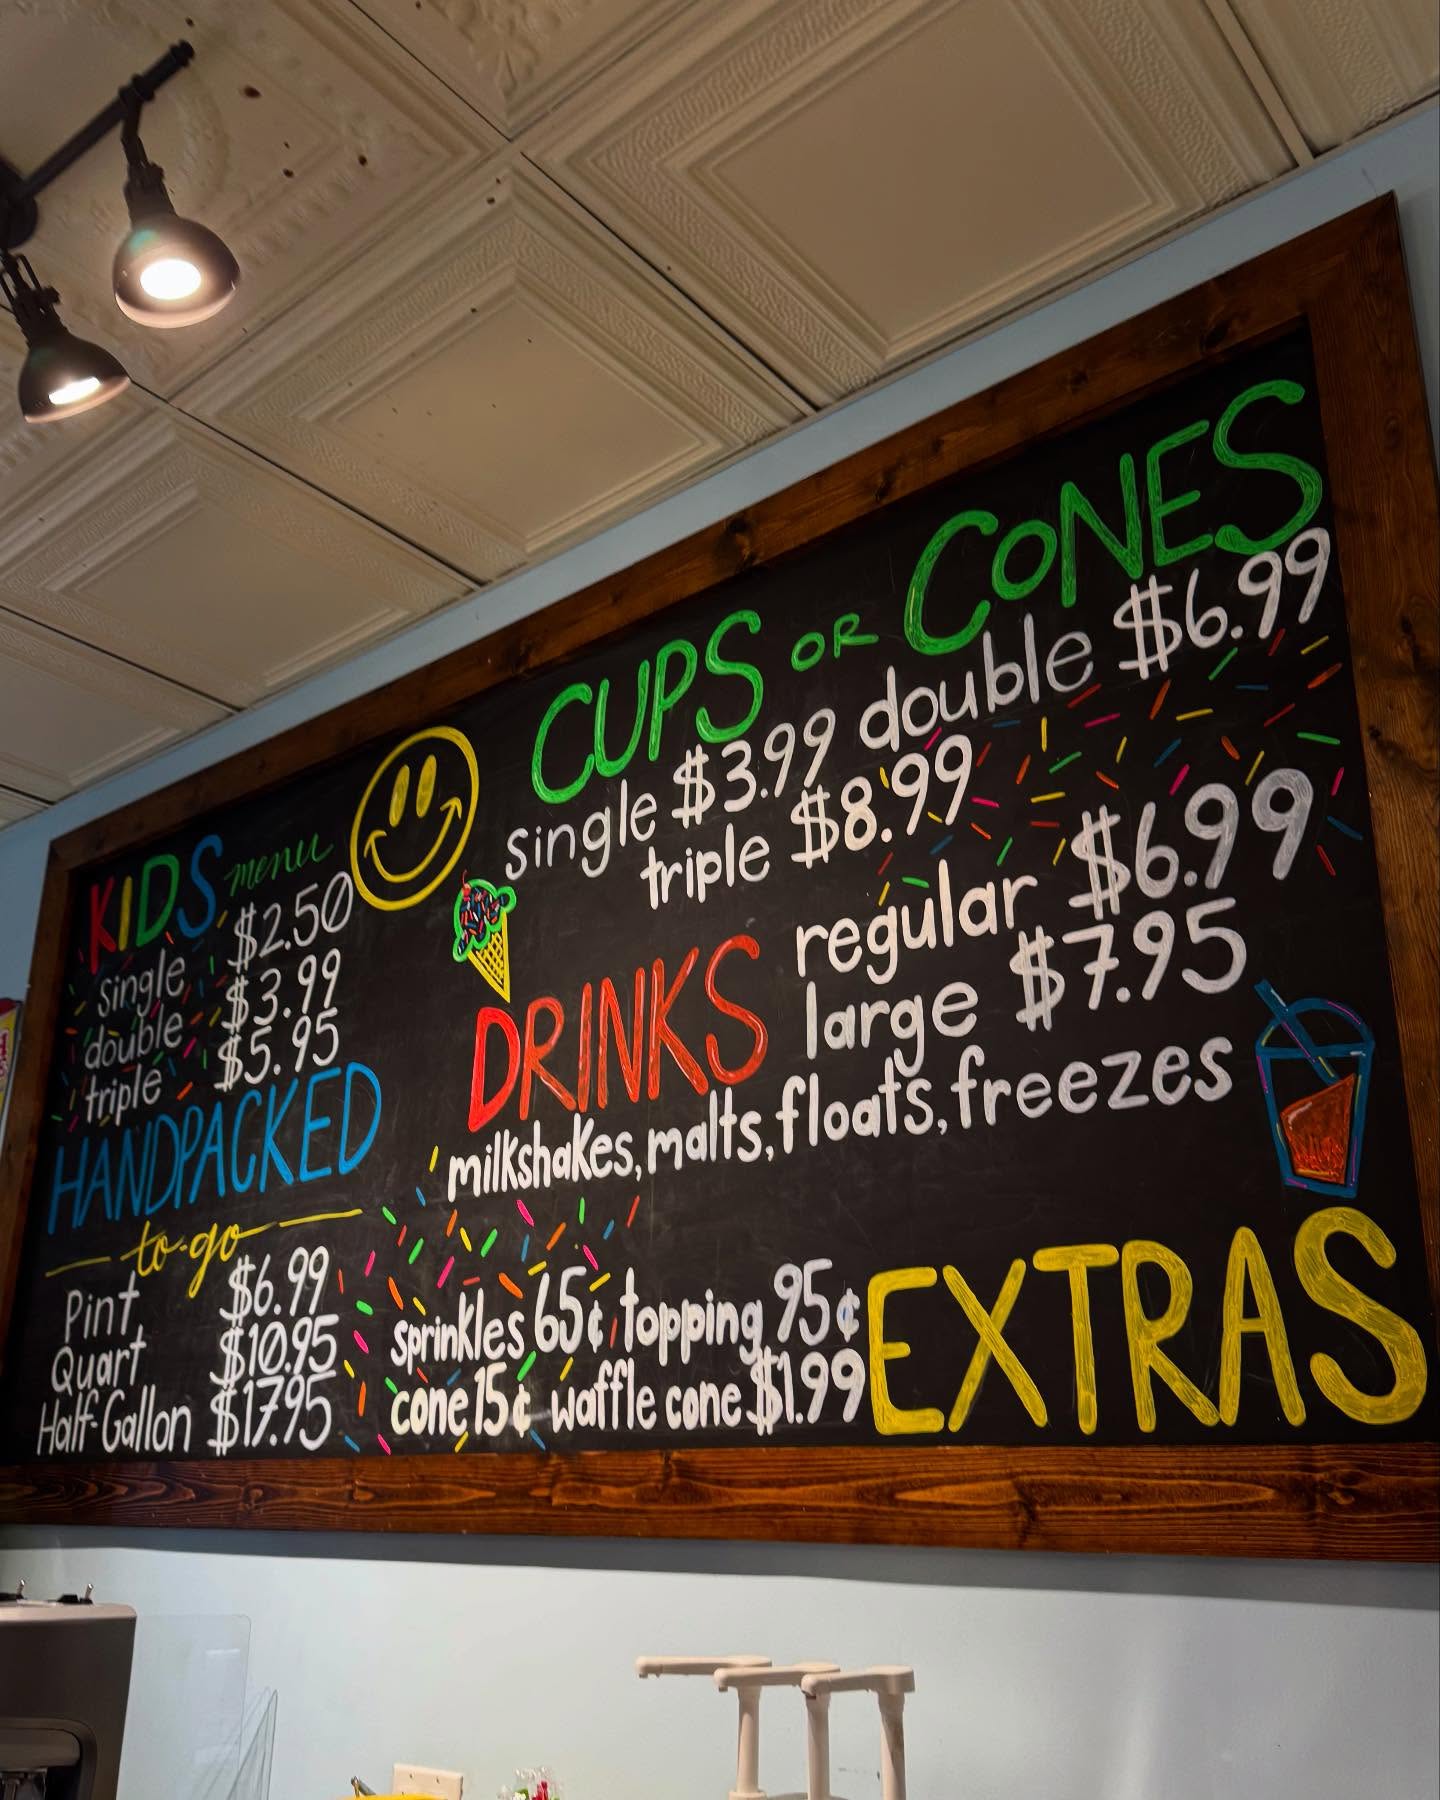 KIDS menu
single $2.50
double $3.99
triple $5.95
HANDPACKED
to-go
Pint $6.99
Quart $10.95
Half-Gallon $17.95
CUPS OR CONES
single $3.99 double $6.99
triple $8.99
DRINKS
regular $6.99
large $7.95
milkshakes, malts, floats, freezes
EXTRAS
sprinkles 65¢ topping 95¢
cone 15¢ waffle cone $1.99